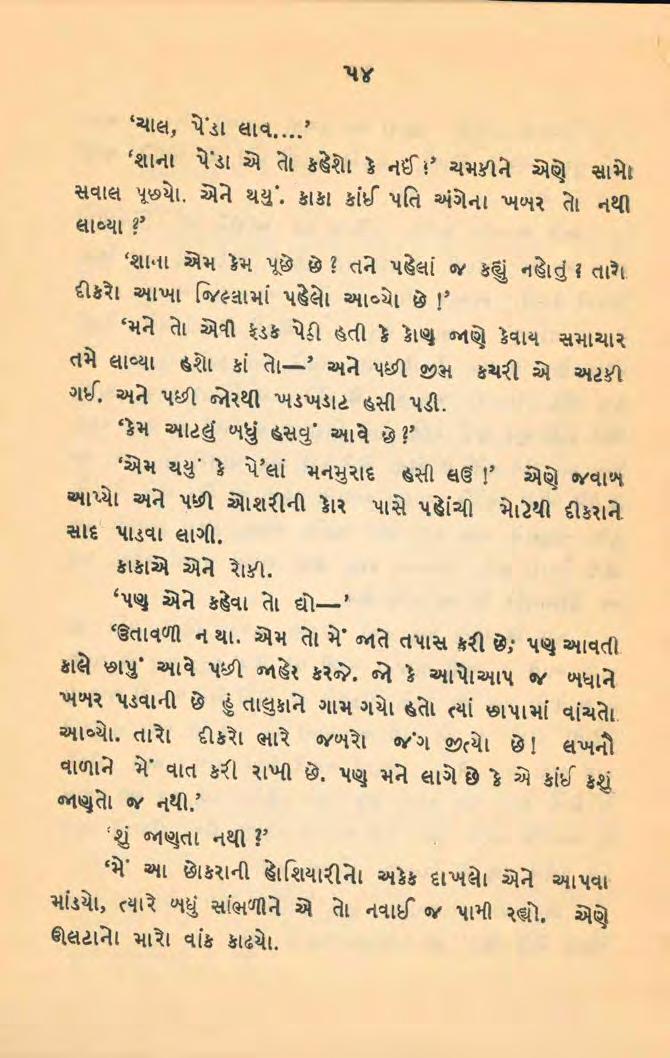 ૫૪
‘ચાલ, પેંડા લાવ....’
‘શાના પેંડા એ તો કહેશો કે નઈ !’ ચમકીને એણે સામો
સવાલ પૂછ્યો. એને થયું. કાકા કાંઈ પતિ અંગેના ખબર તો નથી
લાવ્યા ?’
‘શાના એમ કેમ પૂછે છે ? તને પહેલાં જ કહ્યું નહોતું ? તારો
દીકરો આખા જિલ્લામાં પહેલો આવ્યો છે !’
‘મને તો એવી ફડક પેઠી હતી કે કોણ જાણે કેવાય સમાચાર
તમે લાવ્યા હશો કાં તો—’ અને પછી જીભ કચરી એ અટકી
ગઈ. અને પછી જોરથી ખડખડાટ હસી પડી.
‘કેમ આટલું બધું હસવું આવે છે ?’
‘એમ થયું કે પે’લાં મનમુરાદ હસી લઉં !’ એણે જવાબ
આપ્યો અને પછી ઓશરીની કોર પાસે પહોંચી મોટેથી દીકરાને
સાદ પાડવા લાગી.
કાકાએ એને રોકી.
‘પણ એને કહેવા તો દ્યો—’
‘ઉતાવળી ન થા. એમ તો મેં જાતે તપાસ કરી છે; પણ આવતી
કાલે છાપું આવે પછી જાહેર કરજે. જો કે આપોઆપ જ બધાને
ખબર પડવાની છે હું તાલુકાને ગામ ગયો હતો ત્યાં છાપામાં વાંચતો
આવ્યો. તારો દીકરો ભારે જબરો જંગ જીત્યો છે ! લખનૌ
વાળાને મેં વાત કરી રાખી છે. પણ મને લાગે છે કે એ કાંઈ કશું
જાણતો જ નથી.’
‘શું જાણતા નથી ?’
‘મેં આ છોકરાની હોશિયારીનો અકેક દાખલો એને આપવા
માંડયો, ત્યારે બધું સાંભળીને એ તો નવાઈ જ પામી રહ્યો. એણે
ઊલટાનો મારો વાંક કાઢયો.